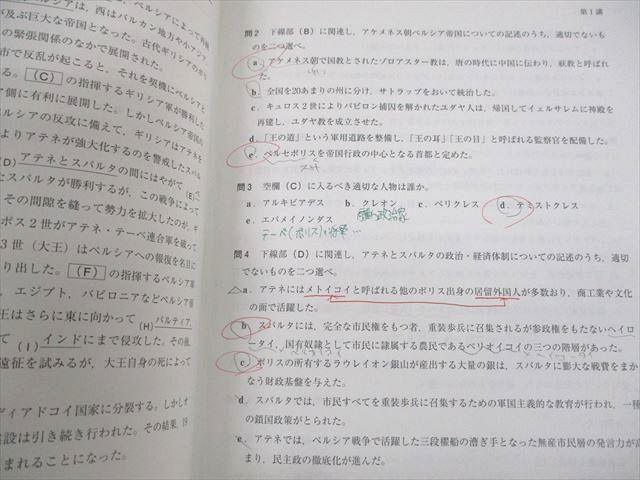 ペルシアによって再興
ア は、西はバルカン地方や小アジア
が及ぶ巨大な帝国となった。古代ギリシアのポリ
の緊張関係のなかで展開された。
市で反乱が起こると、それを契機にペルシアと
(C) の指揮するギリシア軍が勝利した
ア側に有利に展開した。しかしペルシア帝国の
ルシアの反攻に備えて、ギリシアはアテネを
よりアテネが強大化するのを警戒したスパル
(D) アテネとスパルタの間にはやがて (E)
たスパルタが勝利するが、この戦争によって
その間隙を縫って勢力を拡大したのが、ギ
ポス2世がアテネ・テーベ連合軍を破って
3世（大王）はペルシアへの報復を名目に
り出した。 (F) の指揮するペルシア軍
エジプト、バビロニアなどペルシア帝
王はさらに東に向かって (H) パルティア
て (I) インドにまで侵攻した。その後、
遠征を試みるが、大王自身の死によって
ディアドコイ国家に分裂する。しかしオ
建設は引き続き行われた。その結果 19
まれることになった。
第1講
問2 下線部（B）に関連し、アケメネス朝ペルシア帝国についての記述のうち、適切でないも
のを二つ選べ。
a. アケメネス朝で国教とされたゾロアスター教は、唐の時代に中国に伝わり、祆教と呼ばれ
た。
b. 全国を20あまりの州に分け、サトラップをおいて統治した。
c. キュロス2世によりバビロン捕囚を解かれたユダヤ人は、帰国してイェルサレムに神殿を
再建し、ユダヤ教を成立させた。
d. 「王の道」という軍用道路を整備し、「王の耳」「王の目」と呼ばれる監察官を配備した。
e. ペルセポリスを帝国行政の中心となる首都と定めた。
スサ
問3 空欄（C）に入るべき適切な人物は誰か。
a. アルキビアデス b. クレオン c. ペリクレス d. テミストクレス
e. エパメイノンダス
テーベ(ポリス)の将軍…
問4 下線部（D）に関連し、アテネとスパルタの政治・経済体制についての記述のうち、適切
でないものを二つ選べ。
△a. アテネにはメトイコイと呼ばれる他のポリス出身の居留外国人が多数おり、商工業や文化
の面で活躍した。
b. スパルタには、完全な市民権をもつ者、重装歩兵に召集されるが参政権をもたないヘイロ
ータイ、国有奴隷として市民に隷属する農民であるペリオイコイの三つの階層があった。
c. ポリスの所有するラウレイオン銀山が産出する大量の銀は、スパルタに膨大な戦費をまか
なう財政基盤を与えた。
d. スパルタでは、市民すべてを重装歩兵に召集するための軍国主義的な教育が行われ、一種
の鎖国政策がとられた。
e. アテネでは、ペルシア戦争で活躍した三段櫂船の漕ぎ手となった無産市民層の発言力が高
まり、民主政の徹底化が進んだ。